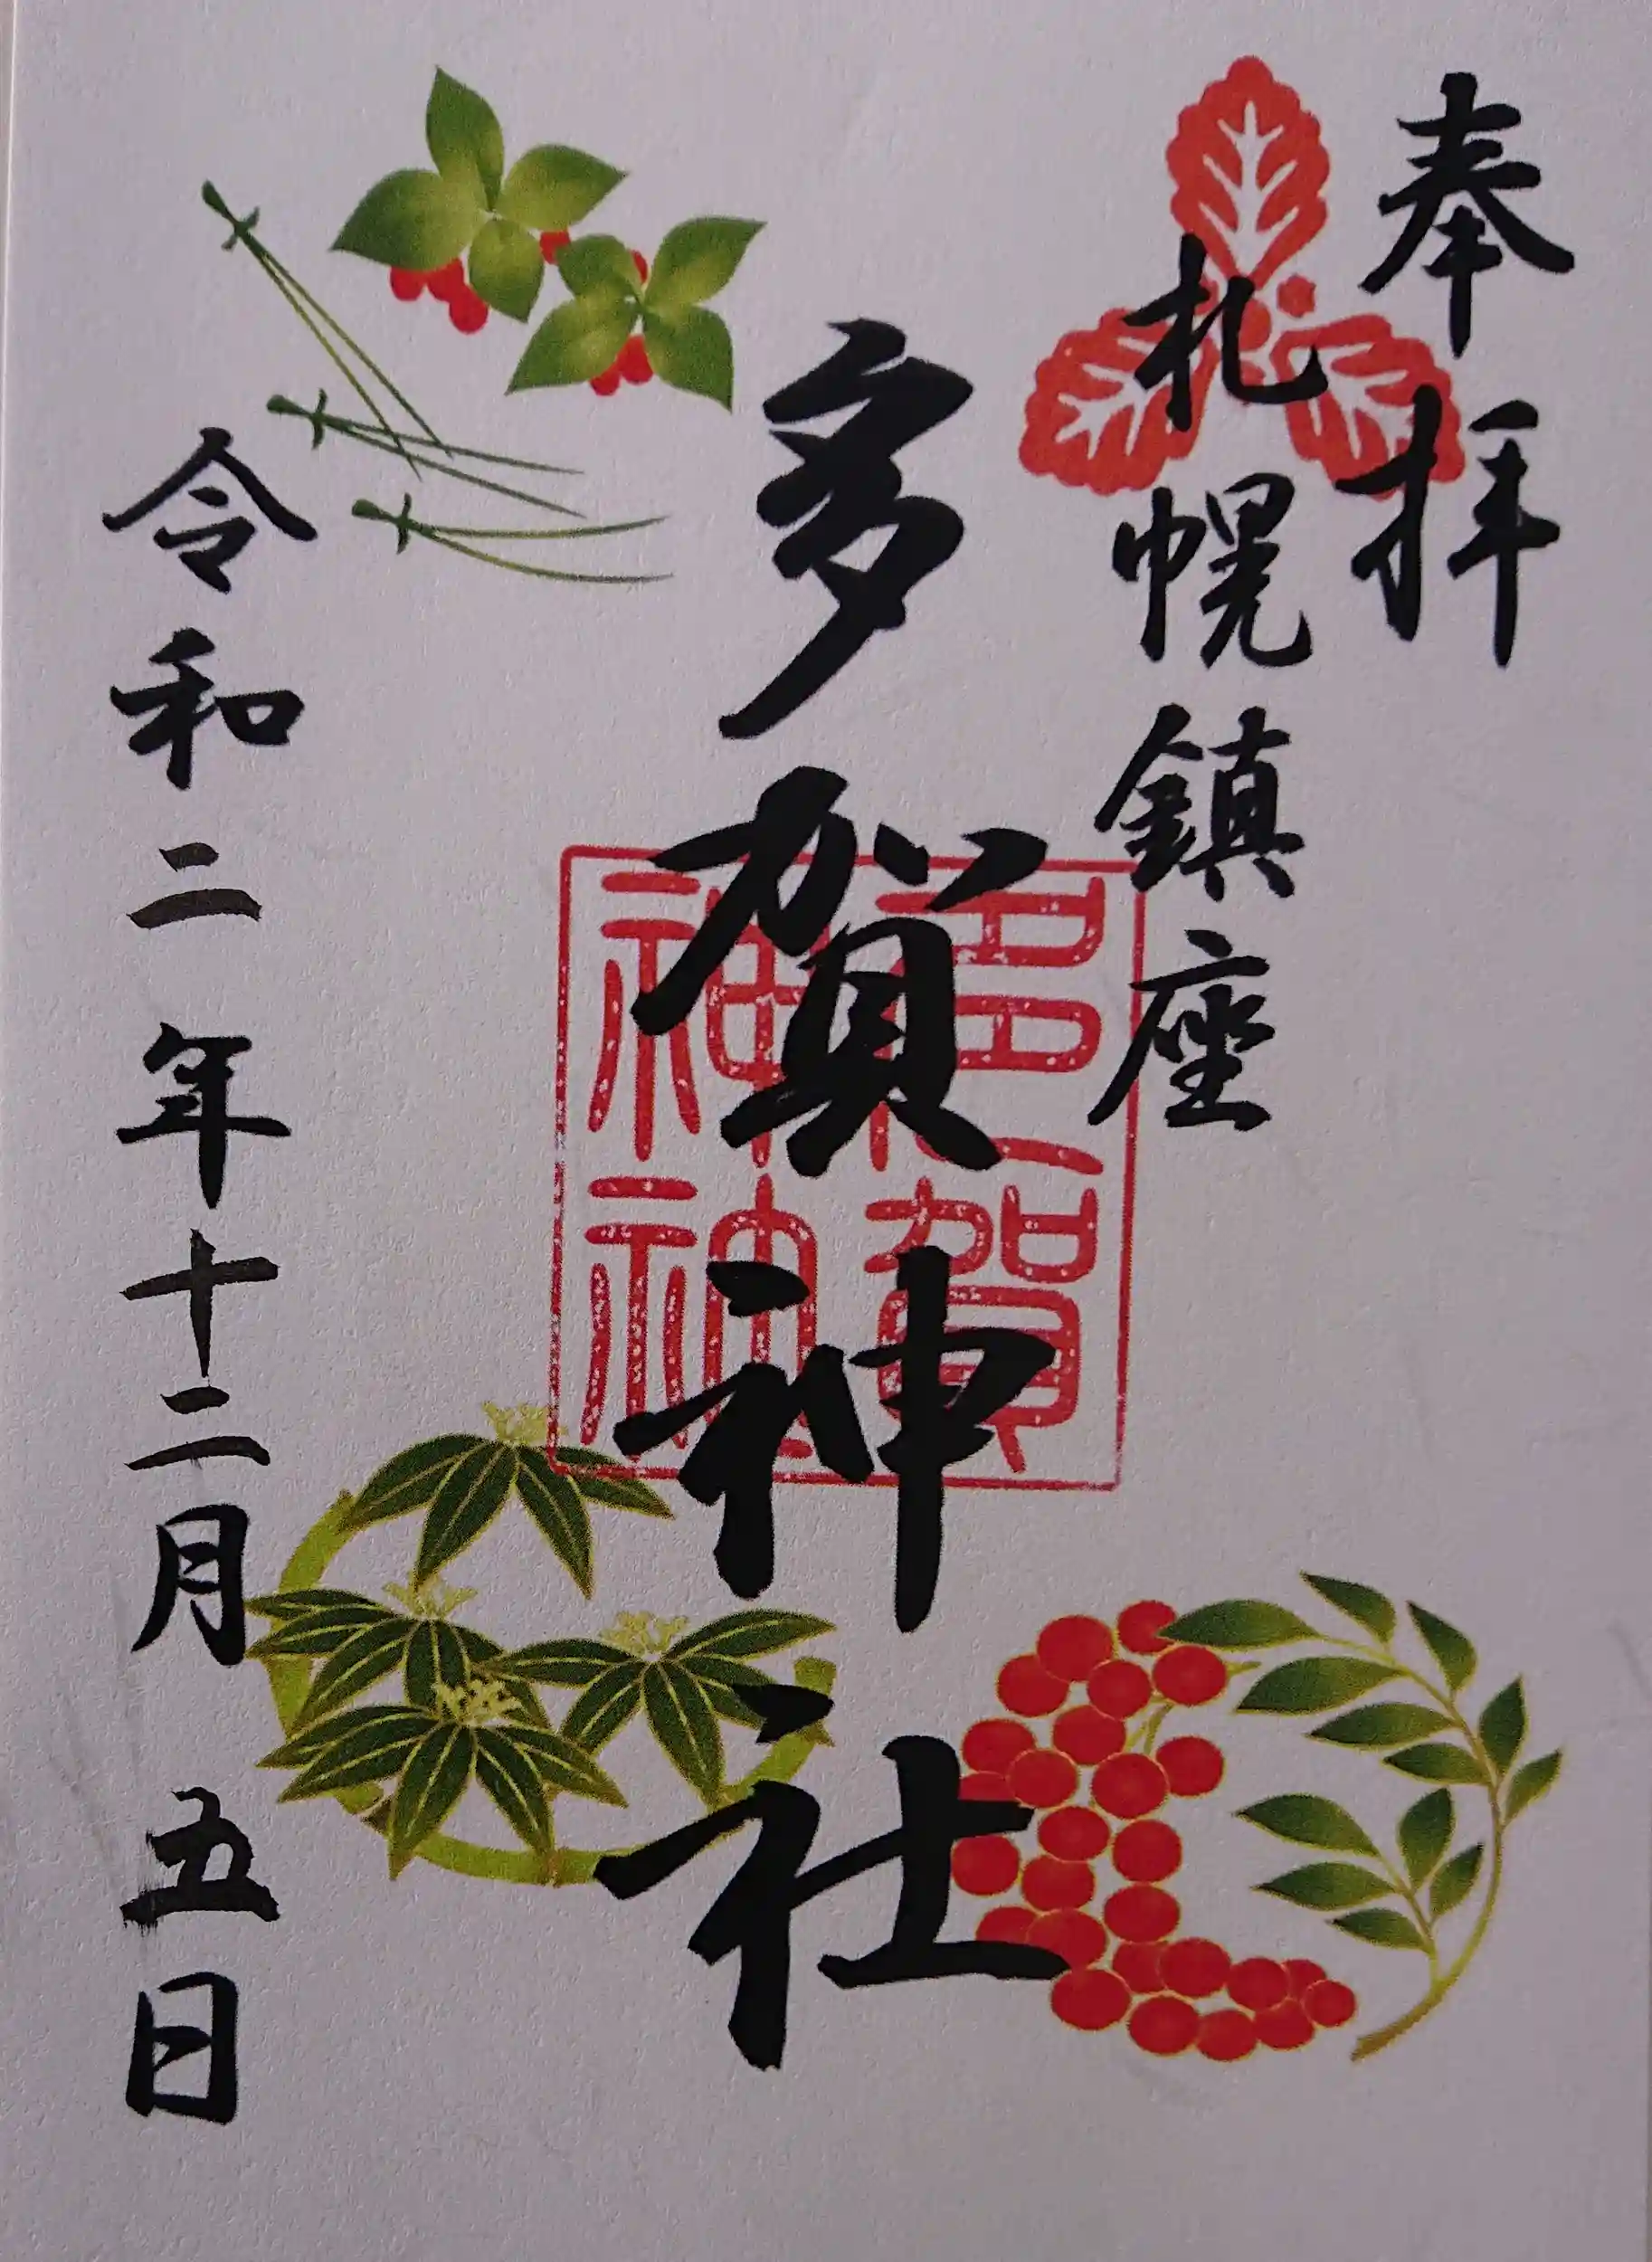 奉拝
札幌鎮座
多賀神社
多賀
神社
令和二年十二月五日